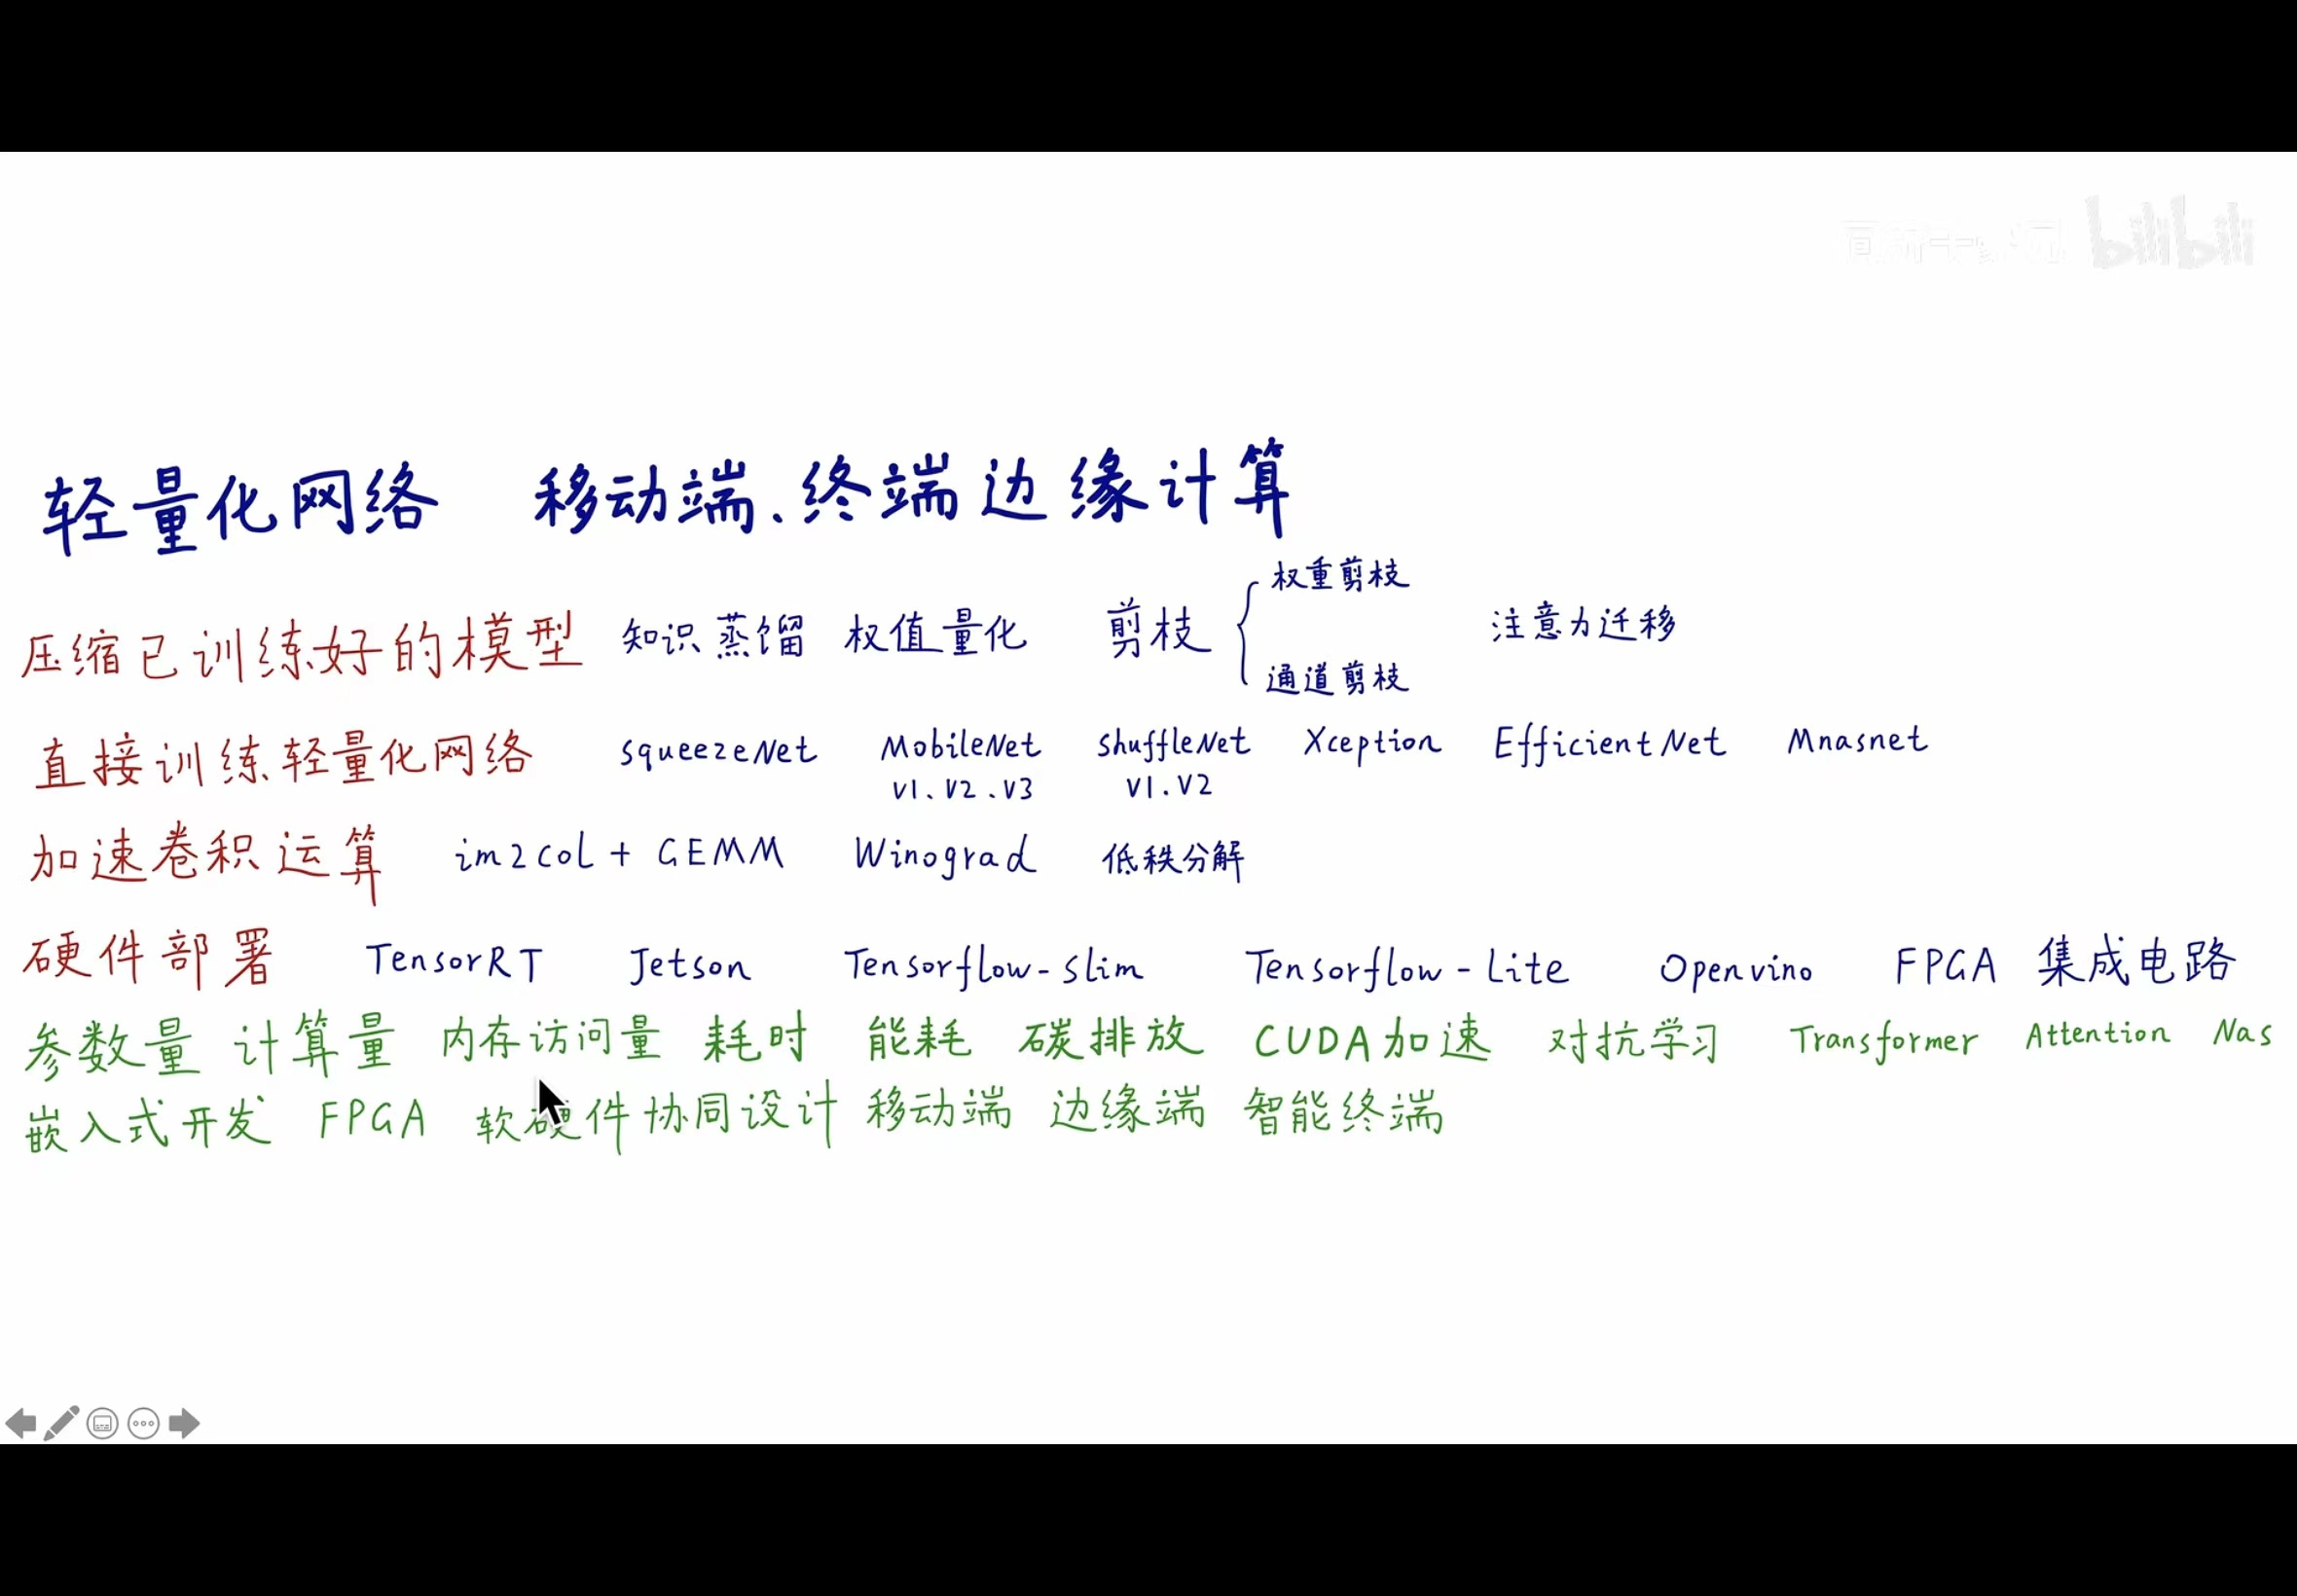 bilibili
轻量化网络 移动端、终端边缘计算
压缩已训练好的模型 知识蒸馏 权值量化 剪枝 权重剪枝 通道剪枝 注意力迁移
直接训练轻量化网络 squeezeNet MobileNet V1、V2、V3 ShuffleNet V1.V2 Xception EfficientNet Mnasnet
加速卷积运算 im2col + GEMM Winograd 低秩分解
硬件部署 TensorRT Jetson Tensorflow-slim Tensorflow-Lite Openvino FPGA 集成电路
参数量 计算量 内存访问量 耗时 能耗 碳排放 CUDA加速 对抗学习 Transformer Attention Nas
嵌入式开发 FPGA 软硬件协同设计 移动端 边缘端 智能终端